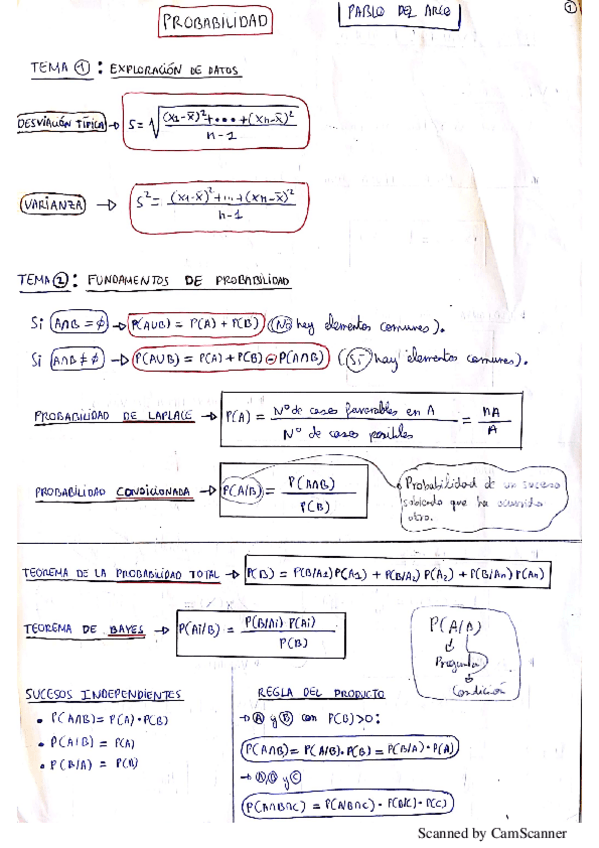 PROBABILIDAD
PABLO DEL ARCO
1
TEMA 1 : EXPLORACIÓN DE DATOS
DESVIACIÓN TÍPICA → S = √((x1-x̄)²+...+(xn-x̄)² / n-1)
VARIANZA → S² = (x1-x̄)²+...+(xn-x̄)² / n-1
TEMA 2 : FUNDAMENTOS DE PROBABILIDAD
Si A∩B = ∅ → P(A∪B) = P(A) + P(B) (No hay elementos comunes).
Si A∩B ≠ ∅ → P(A∪B) = P(A) + P(B) - P(A∩B) (Sí hay elementos comunes).
PROBABILIDAD DE LAPLACE → P(A) = Nº de casos favorables en A / Nº de casos posibles = nA / A
PROBABILIDAD CONDICIONADA → P(A/B) = P(A∩B) / P(B)
Probabilidad de un suceso
sabiendo que ha ocurrido
otro.
TEOREMA DE LA PROBABILIDAD TOTAL → P(B) = P(B/A1)P(A1) + P(B/A2) P(A2) + P(B/An) P(An)
TEOREMA DE BAYES → P(Ai/B) = P(B/Ai) P(Ai) / P(B)
P(A/A)
Pregunta
Condición
SUCESOS INDEPENDIENTES
• P(A∩B) = P(A)·P(B)
• P(A/B) = P(A)
• P(B/A) = P(B)
REGLA DEL PRODUCTO
→ A y B con P(B)>0:
P(A∩B) = P(A/B)·P(B) = P(B/A)·P(A)
→ A, B y C
P(A∩B∩C) = P(A/B∩C) · P(B/C) · P(C)
Scanned by CamScanner